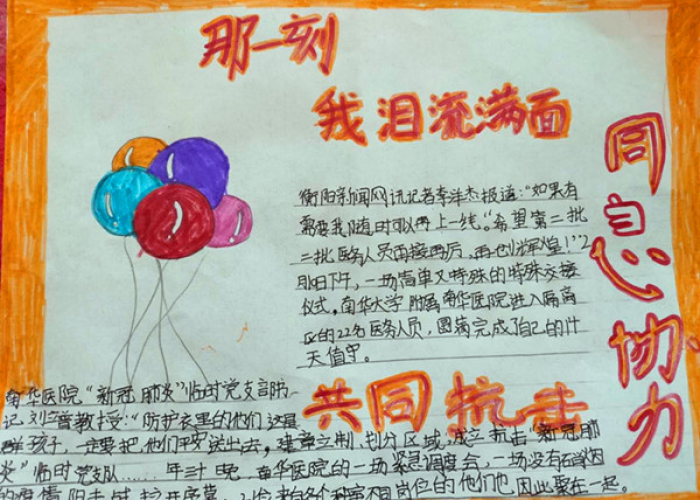 那一刻
我泪流满面
同心协力
衡阳新闻网讯记者李洋杰报道：“如果有
需要我随时可以再上一线。”“希望第二批
三批医务人员再接再厉，再创辉煌！”2
日下午，一场简单又特殊的特殊交接
仪式。南华大学附属南华医院进入隔离
区的22名医务人员，圆满完成了自己的廿
天值守。
共同抗击
南华医院“新冠肺炎”临时党支部书
记刘普教授：“防护衣里的他们这是
群孩子，一定要把他们平安送出去，建章立制、划分区域，成立抗击“新冠肺
炎”临时党支队……年三十晚，南华医院的一场紧急调度会，一场没有硝烟
来自各个科室不同岗位的他们也因此聚在一起。